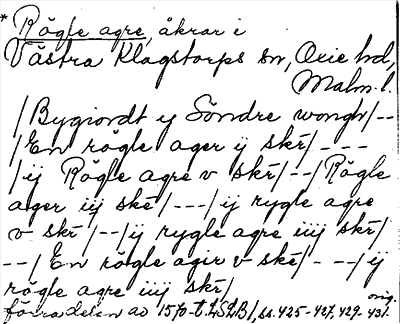 * Rögle agre, åkrar i
Västra Klagstorps sn, Oxie hd,
Malm. l.
/Bygiordt ij Söndre wongh/--
/En rögle ager ij skr/ - - -
/ij Rögle agre v skr/--/Rögle
ager iij skr/---/ij rygle agre
v skr/--/ij rygle agre iiij skr/
--/En rögle agir v skr/- --/ij
rögle agre iiij skr/ orig.
förradelen av 1570-t. LSLB/, ss. 425-427, 429-431.